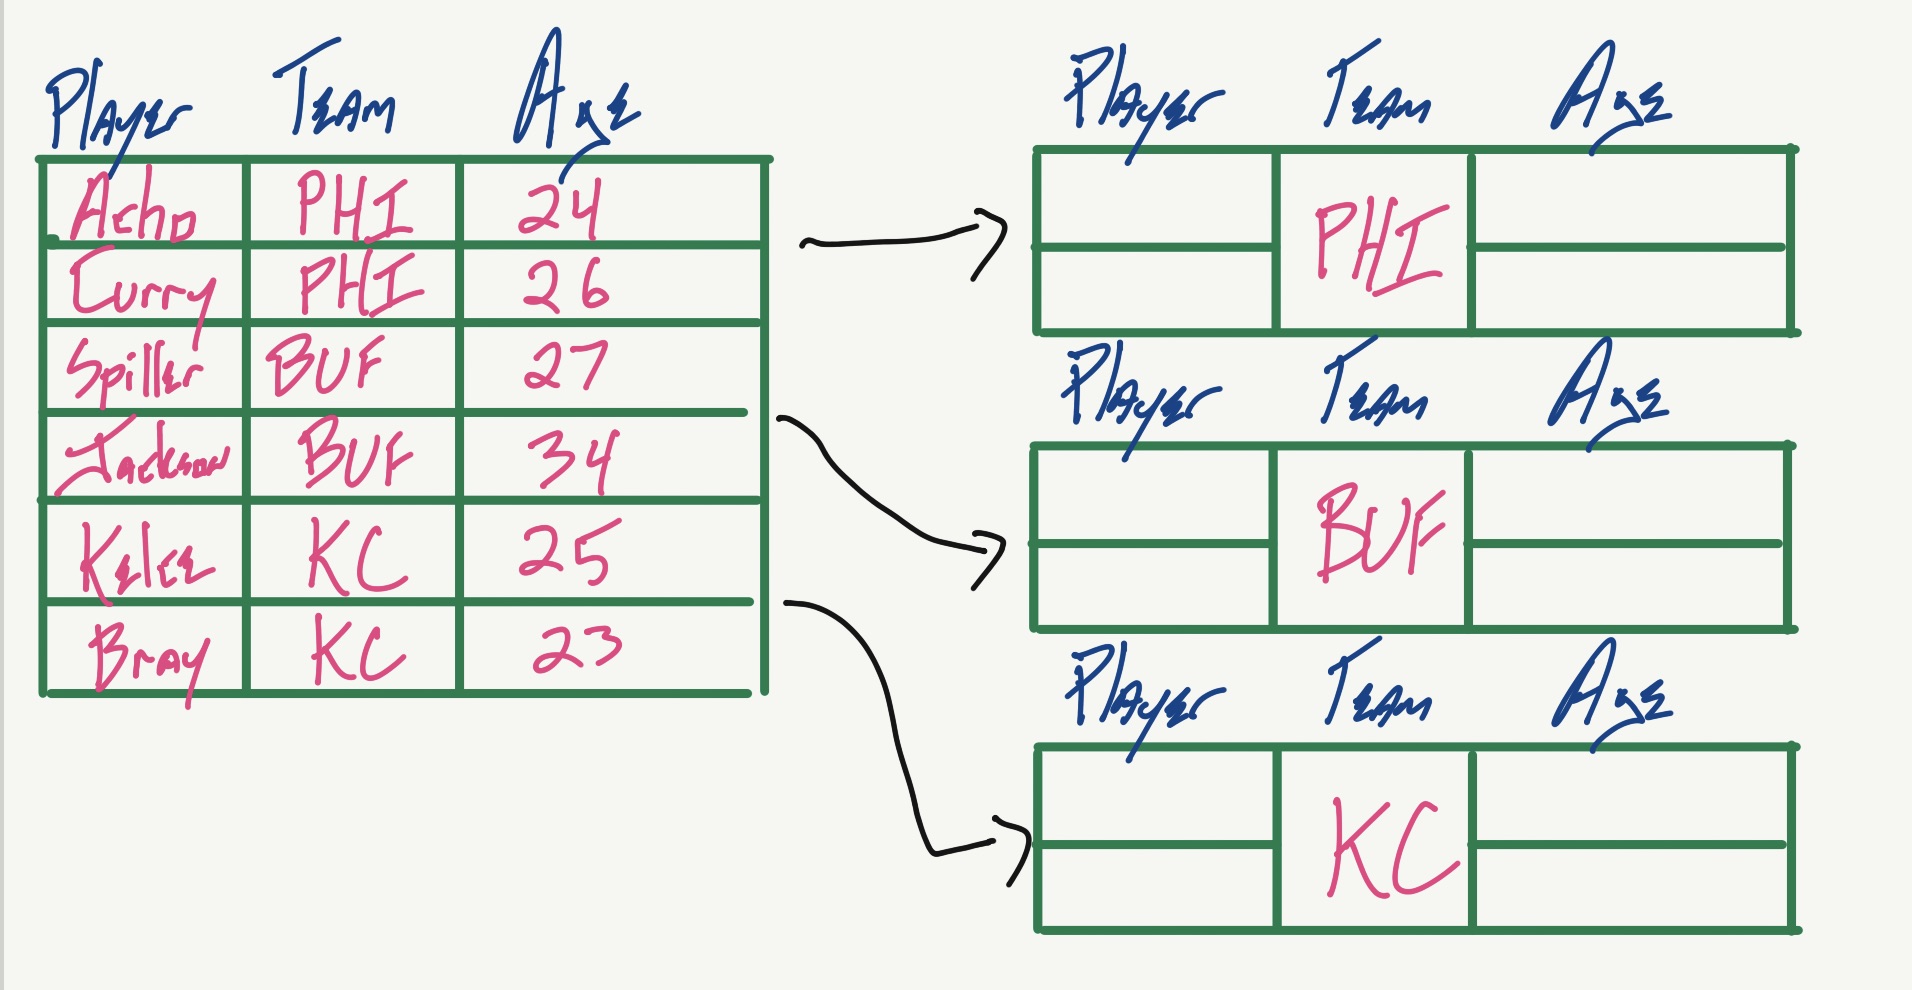 Player Team Age
Acho PHI 24
Curry PHI 26
Spiller BUF 27
Jackson BUF 34
Kelce KC 25
Bray KC 23
Player Team Age
PHI
Player Team Age
BUF
Player Team Age
KC